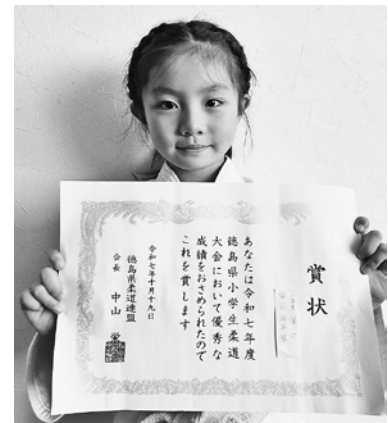 賞状
あなたは令和七年度
徳島県小学生柔道
大会において優秀な
成績をおさめられたので
これを賞します
令和七年十月十九日
徳島県柔道連盟
会長 中山